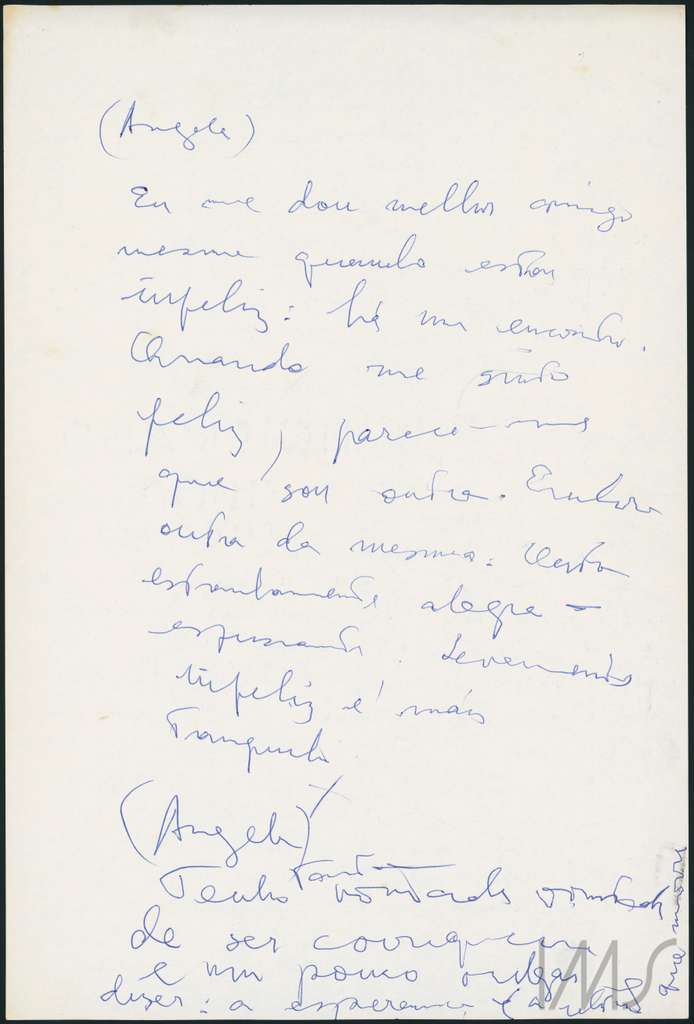 (Angela)
Eu me dou melhor comigo
mesma quando estou
infeliz: há um encontro.
Quando me sinto
feliz, parece-me
que sou outra. Embora
outra da mesma. Outra
estranhamente alegre —
esfuziante. Levemente
infeliz é mais
tranquilo
(Angela)
Tenho tanta vontade
de ser corriqueira
e um pouco vulgar
dizer: a esperança é a última
que morre
IMS